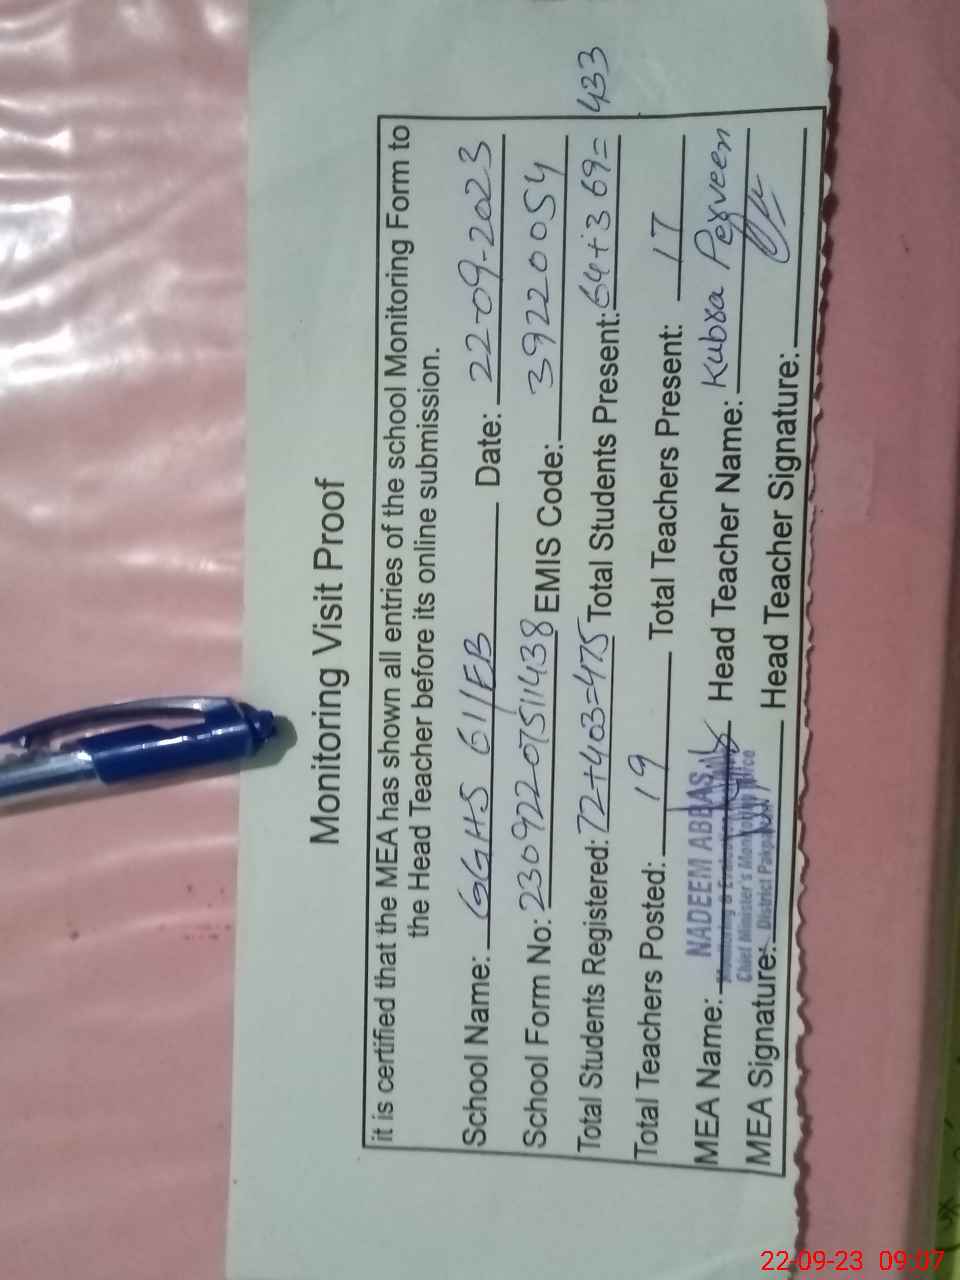 Monitoring Visit Proof
it is certified that the MEA has shown all entries of the school Monitoring Form to
the Head Teacher before its online submission.
School Name: GGHS 61/EB Date: 22-09-2023
School Form No: 23092207511438 EMIS Code: 39220054
Total Students Registered: 72+403=475 Total Students Present: 64+369= 433
Total Teachers Posted: 19 Total Teachers Present: 17
MEA Name: NADEEM ABBAS Head Teacher Name: Kubra Perveen
Monitoring & Evaluation
Chief Minister's Monitoring Office
MEA Signature: District Pakpattan Head Teacher Signature:
22-09-23 09:07